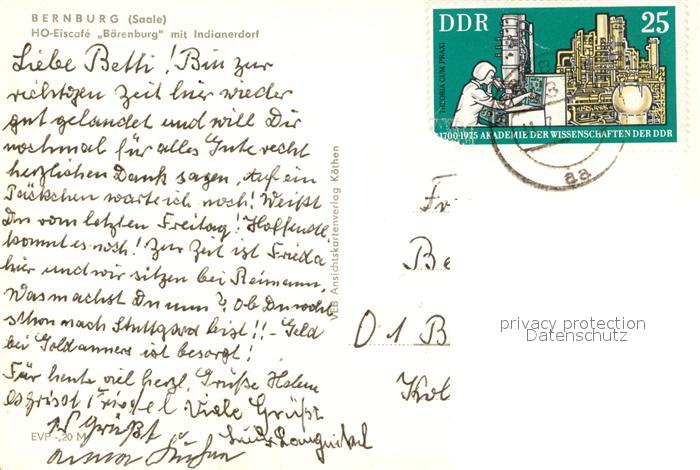 BERNBURG (Saale)
HO-Eiscafé „Bärenburg" mit Indianerdorf
Liebe Betti! Bin zur
richtigen Zeit hier wieder
gut gelandet und will Dir
nochmal für alles Gute recht
herzlichen Dank sagen, auf ein
Päckchen warte ich noch! Weißt
Du vom letzten Freitag! Hoffendl
kommt es noch! Zur Zeit ist Frieda
hier und wir sitzen bei Reimann.
Was machst Du nun? Ob Du noch
schon nach Stuttgard bist!! - Geld
bei Goldammers ist besorgt!
Für heute viel herzl. Grüße Helene
Es grüsst Friedel Viele Grüße
Grüßt
EVP -,20 M
VEB Ansichtskartenverlag Köthen
DDR 25
THEORIA CUM PRAXI
1700-1975 AKADEMIE DER WISSENSCHAFTEN DER DDR
aa
Fr
Be
01 B
privacy protection
Datenschutz